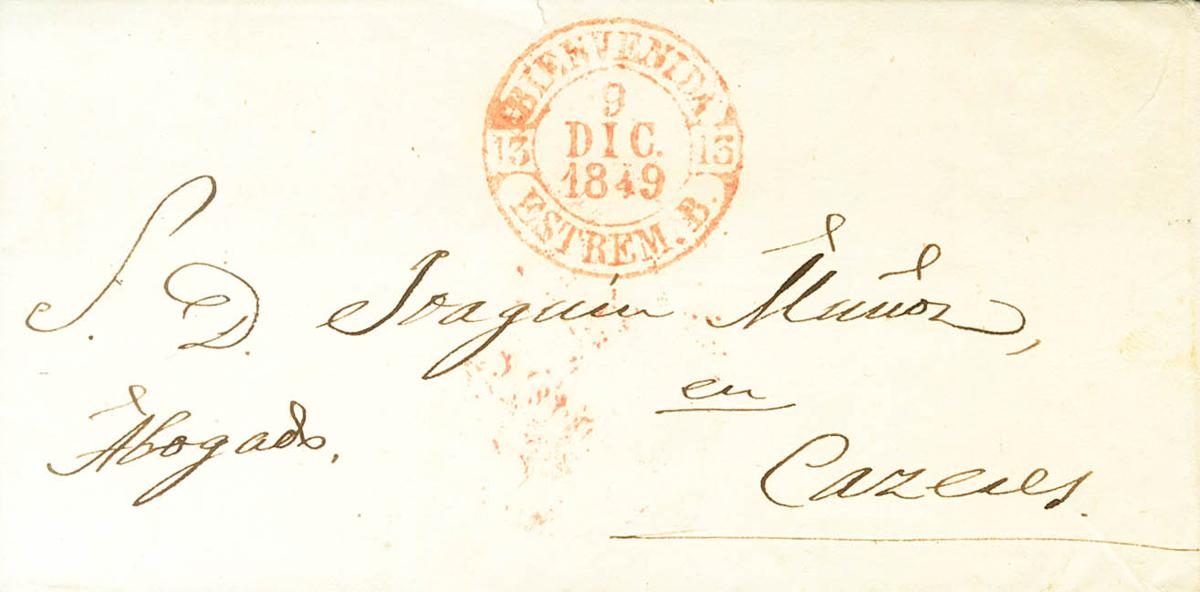 BIENVENIDA
9
DIC.
1849
13 13
ESTREM. B.
S. D. Joaquín Muñoz,
Abogado,
en
Cazeres.